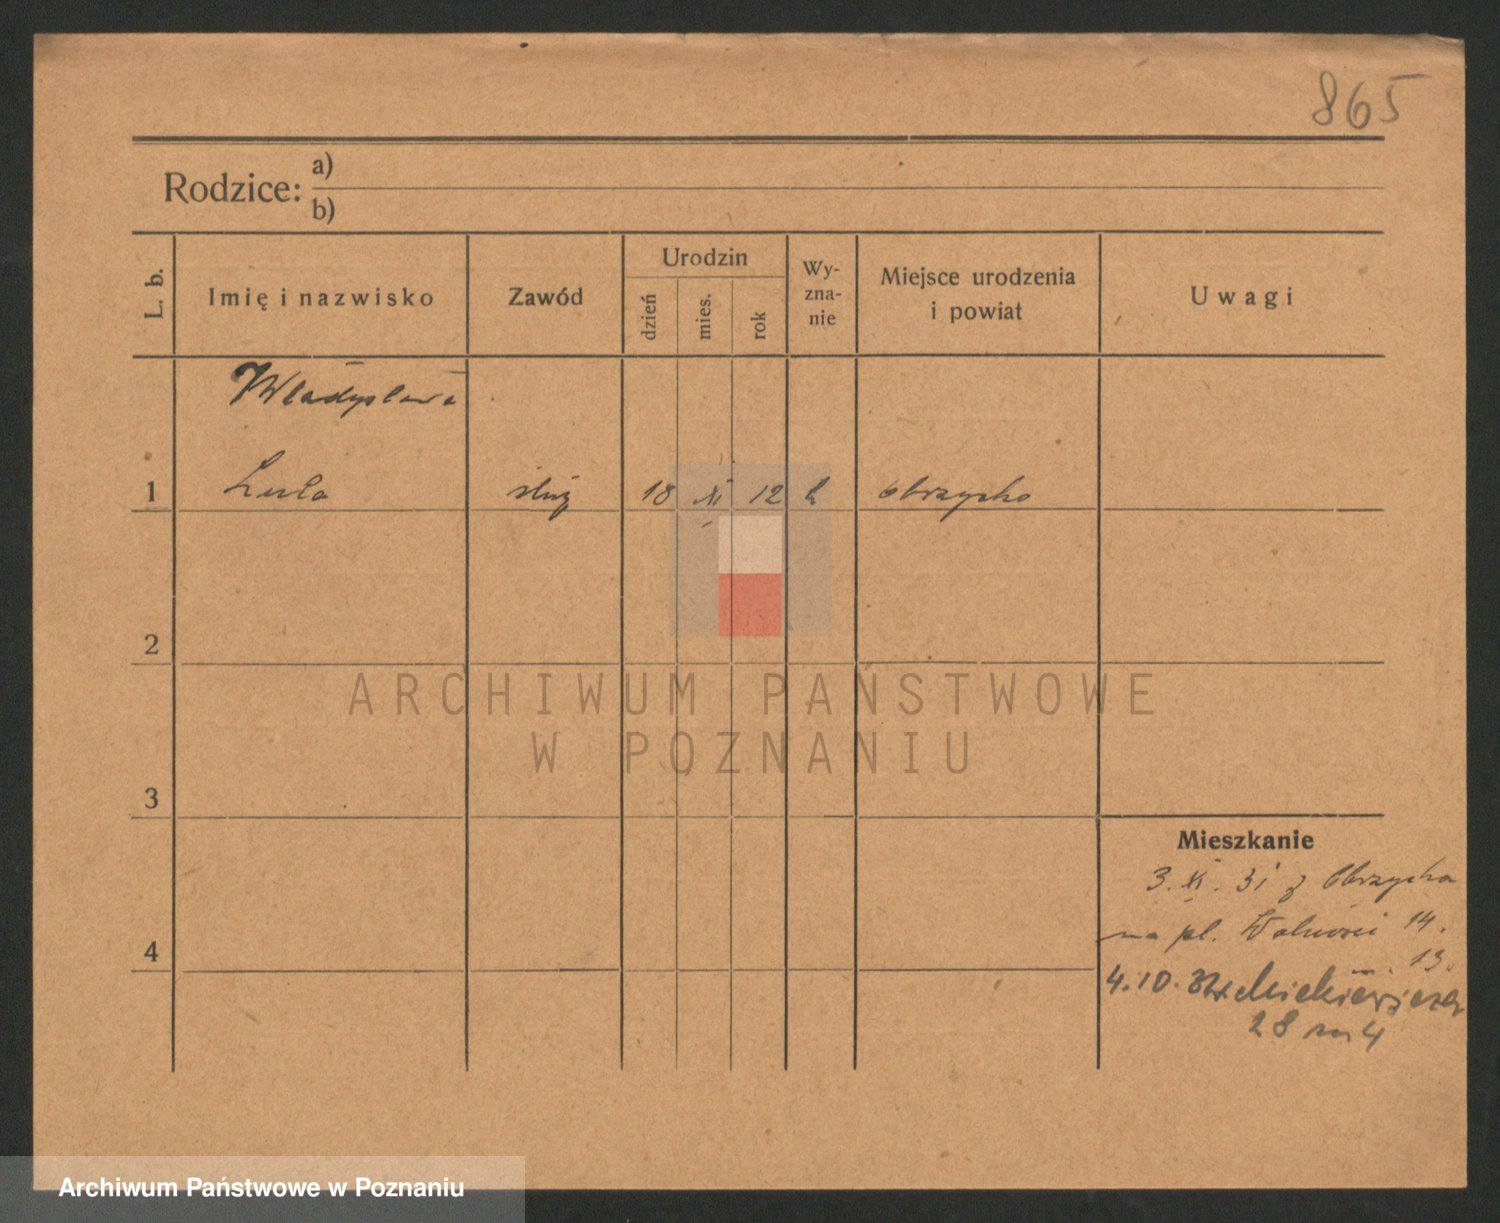 865
Rodzice: a)
b)
L. b.
Imię i nazwisko
Zawód
Urodzin
dzień
mies.
rok
Wy-
zna-
nie
Miejsce urodzenia
i powiat
Uwagi
Władysława
1 Lula służ 18 XI 12 k Obrzycko
2
3
4
Mieszkanie
3. XI. 31 z Obrzycka
na pl. Wolności 14.
m. 13.
4.10. Mickiewicza
28 m 4
ARCHIWUM PAŃSTWOWE
W POZNANIU
Archiwum Państwowe w Poznaniu